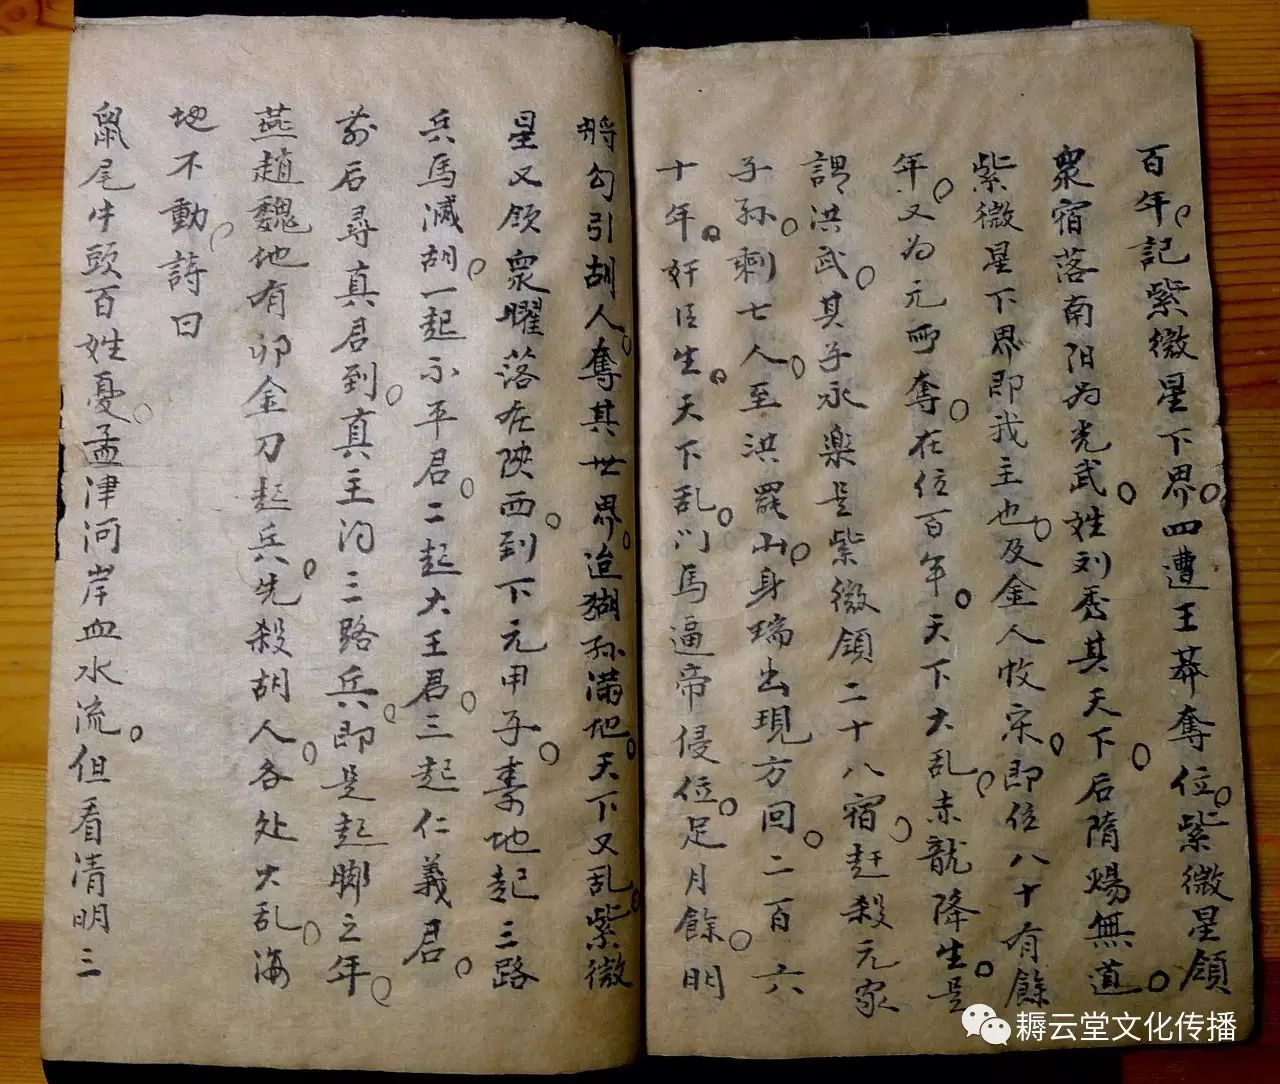 百年。記紫微星下界。四遭王莽奪位。紫微星領
衆宿落南阳为光武。姓刘秀其天下。后隋煬無道。
紫微星下界即我主也。及金人收宋。即位八十有餘
年。又为元所奪。在位百年。天下大乱。赤龍降生。是
謂洪武。其子永樂是紫微領二十八宿。赶殺元家
子孫。剩七人。至洪羅山。身瑞出現方回。二百六
十年。奸臣生。天下乱。门馬逼帝侵位。足月餘。明
將勾引胡人。奪其世界。迨猢孫满地。天下又乱。紫微
星又领衆曜落在陕西。到下元甲子。秦地起三路
兵馬滅胡。一起不平君。二起大王君。三起仁義君。
前后尋真君到。真主问三路兵。即是起脚之年。
燕趙魏地有卯金刀起兵。先殺胡人。各处大乱。海
地不動。詩曰
鼠尾牛頭百姓憂。孟津河岸血水流。但看清明三
耨云堂文化传播